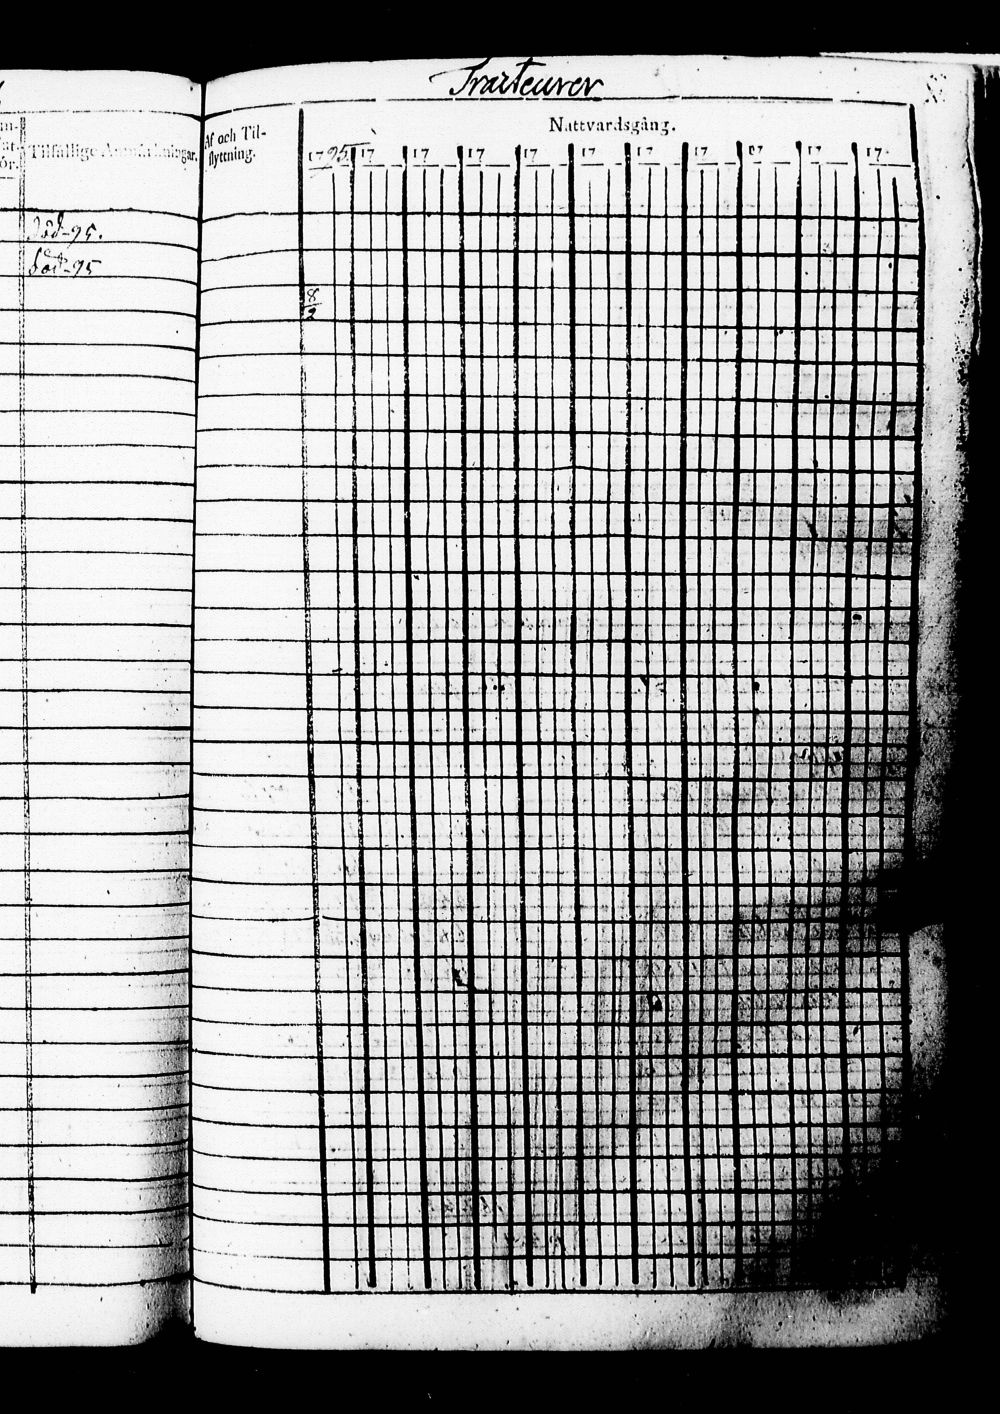 Tracteurer
Tilfällige Anmärkningar.
död-95.
död-95
Af och Til-
flyttning.
Nattvardsgång.
1795. 17 17 17 17 17 17 17 17 17 17
8
2